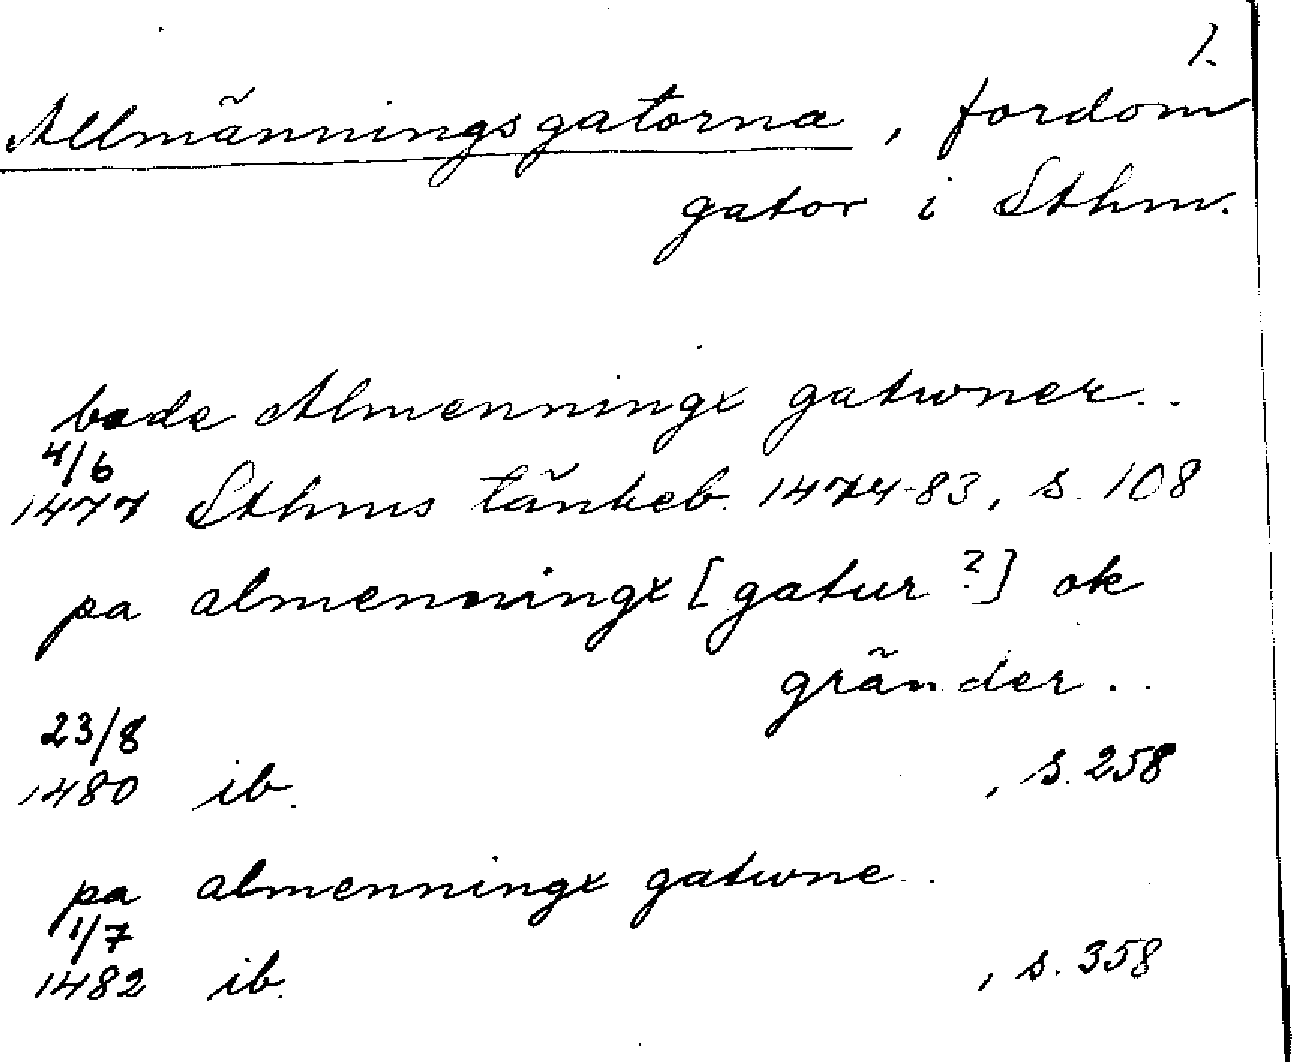 1.
Allmänningsgatorna, fordom
gator i Sthm.
bode Almenningx gatwner..
4/6
1477 Sthms tänkeb. 1474-83, s. 108
pa almenningx [gatur?] ok
gränder..
23/8
1480 ib. , s. 258
pa almenningx gatwne..
1/7
1482 ib. , s. 358